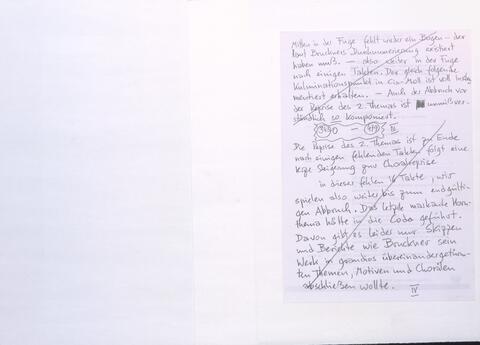 Mitten in der Fuge fehlt wieder ein Bogen – der
laut Bruckners Durchnummerierung existiert
haben muß. – also weiter in der Fuge
nach einigen Takten. Der gleich folgende
Kulminationspunkt in Cis-Moll ist voll instru-
mentiert erhalten. – Auch der Abbruch vor
der Reprise des 2. Themas ist unmißver-
ständlich so komponiert.
IV
Die Reprise des 2. Themas ist zu Ende
nach einigen fehlenden Takten folgt eine
Steigerung zur Choralreprise
in dieser fehlen 16 Takte, wir
spielen also weiter bis zum endgülti-
gen Abbruch. Das letzte markante Horn-
thema hätte in die Coda geführt.
Davon gibt es leider nur Skizzen
und Berichte wie Bruckner sein
Werk in grandios übereinandergetürm-
ten Themen, Motiven und Chorälen
abschließen wollte.
IV